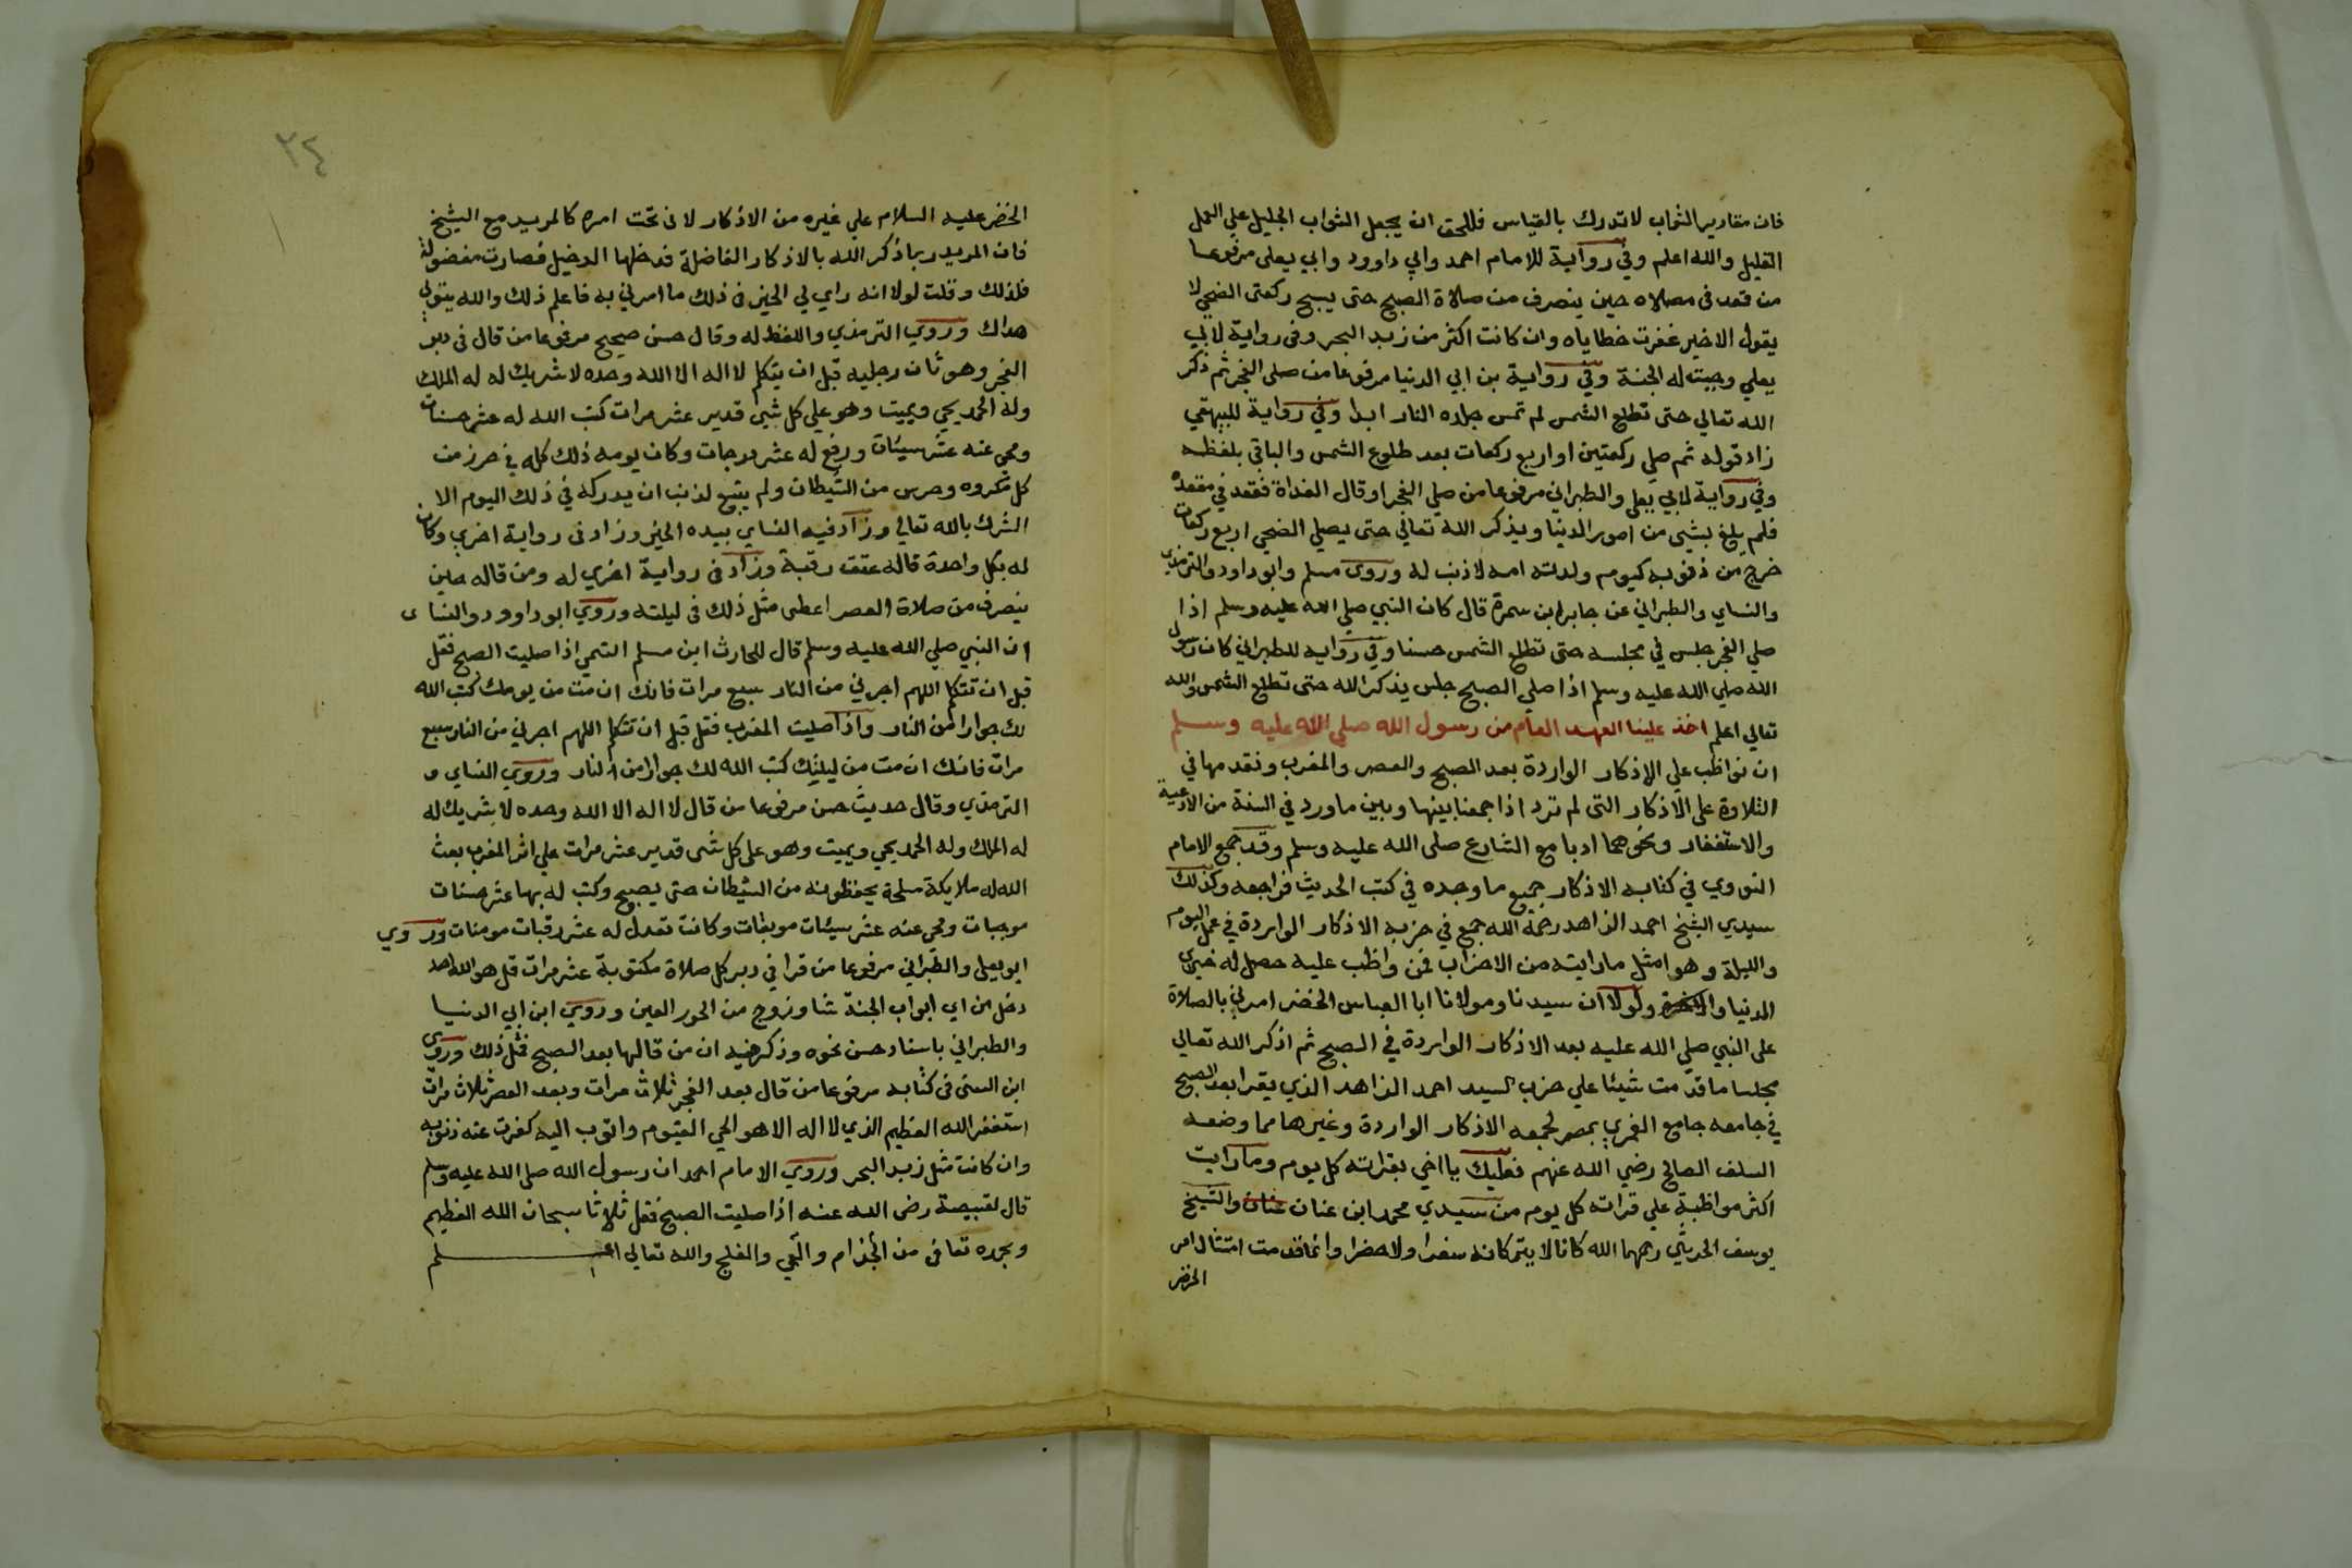 فان مقادير الثواب لا تدرك بالقياس فللحق ان يجعل الثواب الجليل علي العمل
القليل والله اعلم وفي رواية للامام احمد وابي داوود وابي يعلى مرفوعا
من قعد فى مصلاه حين ينصرف من صلاة الصبح حتى يسبح ركعتى الضحي لا
يقول الا خير غفرت خطاياه وان كانت اكثر من زبد البحر وفى رواية لابي
يعلي وجبت له الجنة وفي رواية بن ابي الدنيا مرفوعا من صلى الفجر ثم ذكر
الله تعالي حتى تطلع الشمس لم تمس جلده النار ابدا وفي رواية للبيهقي
زاد قوله ثم صلي ركعتين او اربع ركعات بعد طلوع الشمس والباقي بلفظه
وفي رواية لابي يعلى والطبراني مرفوعا من صلي الفجر او قال الغداة فقعد في مقعده
فلم يلغ بشي من امور الدنيا ويذكر الله تعالي حتى يصلي الضحي اربع ركعات
خرج من ذنوبه كيوم ولدته امه لا ذنب له وروى مسلم وابو داود والترمذي
والنساي والطبراني عن جابر ابن سمرة قال كان النبي صلي الله عليه وسلم اذا
صلي الفجر جلس في مجلسه حتى تطلع الشمس حسنا وفي رواية للطبراني كان رسول
الله صلي الله عليه وسلم اذا صلي الصبح جلس يذكر الله حتى تطلع الشمس والله
تعالي اعلم اخذ علينا العهد العام من رسول الله صلي الله عليه وسلم
ان نواظب علي الاذكار الواردة بعد الصبح والعصر والمغرب ونقدمها في
التلاوة على الاذكار التى لم ترد اذا جمعنا بينها وبين ما ورد في السنة من الادعية
والاستغفار ونحوهما ادبا مع الشارع صلى الله عليه وسلم وقد جمع الامام
النووي في كتابه الاذكار جميع ما وجده في كتب الحديث فراجعه وكذلك
سيدي الشيخ احمد الزاهد رحمة الله جمع في حزبه الاذكار الواردة في عمل اليوم
والليلة وهو امثل ما رايته من الاحزاب فمن واظب عليه حصل له خيري
الدنيا والاخرة ولولا ان سيدنا ومولانا ابا العباس الخضر امرني بالصلاة
على النبي صلي الله عليه بعد الاذكار الواردة في الصبح ثم اذكر الله تعالي
مجلسا ما قدمت شيئا علي حزب السيد احمد الزاهد الذي يقرا بعد الصبح
في جامعه جامع الغمري بمصر لجمعه الاذكار الواردة وغيرها مما وضعه
السلف الصالح رضي الله عنهم فعليك يا اخي بقراته كل يوم وما رايت
اكثر مواظبة علي قراته كل يوم من سيدي محمد ابن عنان عنان والشيخ
يوسف الحريثي رحمهما الله كانا لا يتركانه سفرا ولا حضرا وانما قدمت امتثال امر
الخضر
٢٤
الخضر عليه السلام علي غيره من الاذكار لانى تحت امره كالمريد مع الشيخ
فان المريد ربما ذكر الله بالاذكار الفاضلة فدخلها الدخيل فصارت مفضولة
فلذلك وقلت لولا انه راي لي الخير فى ذلك ما امرني به فاعلم ذلك والله يتولي
هداك وروي الترمذي واللفظ له وقال حسن صحيح مرفوعا من قال فى دبر
الفجر وهو ثان رجليه قبل ان يتكلم لا اله الا الله وحده لا شريك له له الملك
وله الحمد يحي ويميت وهو علي كل شي قدير عشر مرات كتب الله له عشر حسنات
ومحي عنه عشر سيئات ورفع له عشر درجات وكان يومه ذلك كله في حرز من
كل مكروه وحرس من الشيطان ولم يتبع لذنب ان يدركه في ذلك اليوم الا
الشرك بالله تعالي وزاد فيه النساي بيده الخير وزاد فى رواية اخري وكان
له بكل واحدة قاله عتق رقبة وزاد فى رواية اخري له ومن قاله حين
ينصرف من صلاة العصر اعطى مثل ذلك فى ليلته وروي ابو داوود والنساى
ان النبي صلي الله عليه وسلم قال للحارث ابن مسلم التمي اذا صليت الصبح فقل
قبل ان تتكلم اللهم اجرني من النار سبع مرات فانك ان مت من يومك كتب الله
لك جوارا من النار واذا صليت المغرب فقل قبل ان تتكلم اللهم اجرني من النار سبع
مرات فانك ان مت من ليلتك كتب الله لك جوارا من النار وروي النساي و
الترمذي وقال حديث حسن مرفوعا من قال لا اله الا الله وحده لا شريك له
له الملك وله الحمد يحي ويميت وهو على كل شى قدير عشر مرات علي اثر المغرب بعث
الله له ملايكة مسلحة يحفظونه من الشيطان حتى يصبح وكتب له بها عشر حسنات
موجبات ومحي عنه عشر سيئات موبقات وكانت تعدل له عشر رقبات مومنات وروي
ابو يعلى والطبراني مرفوعا من قرا في دبر كل صلاة مكتوبة عشر مرات قل هو الله احد
دخل من اي ابواب الجنة شا وزوج من الحور العين وروي ابن ابي الدنيا
والطبراني باسناد حسن نحوه وذكر فيه ان من قالها بعد الصبح فمثل ذلك وروى
ابن السنى فى كتابه مرفوعا من قال بعد الفجر ثلاث مرات وبعد العصر ثلاث مرات
استغفر الله العظيم الذي لا اله الا هو الحي القيوم واتوب اليه كفرت عنه ذنوبه
وان كانت مثل زبد البحر وروي الامام احمد ان رسول الله صلى الله عليه وسلم
قال لقبيصة رضى الله عنه اذا صليت الصبح فقل ثلاثا سبحان الله العظيم
وبحمده تعافى من الجذام والعمي والفلج والله تعالي اعلم